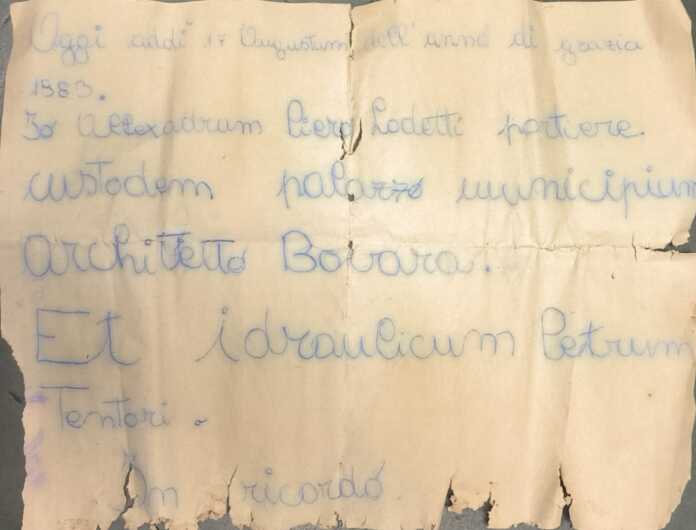 Oggi addì 17 Augustum dell'anno di grazia
1983.
Io Allexadrum Piero Lodetti portiere.
custodem palazzo municipium
architetto Bovara.
Et idraulicum Petrum
Tentori.
In ricordo